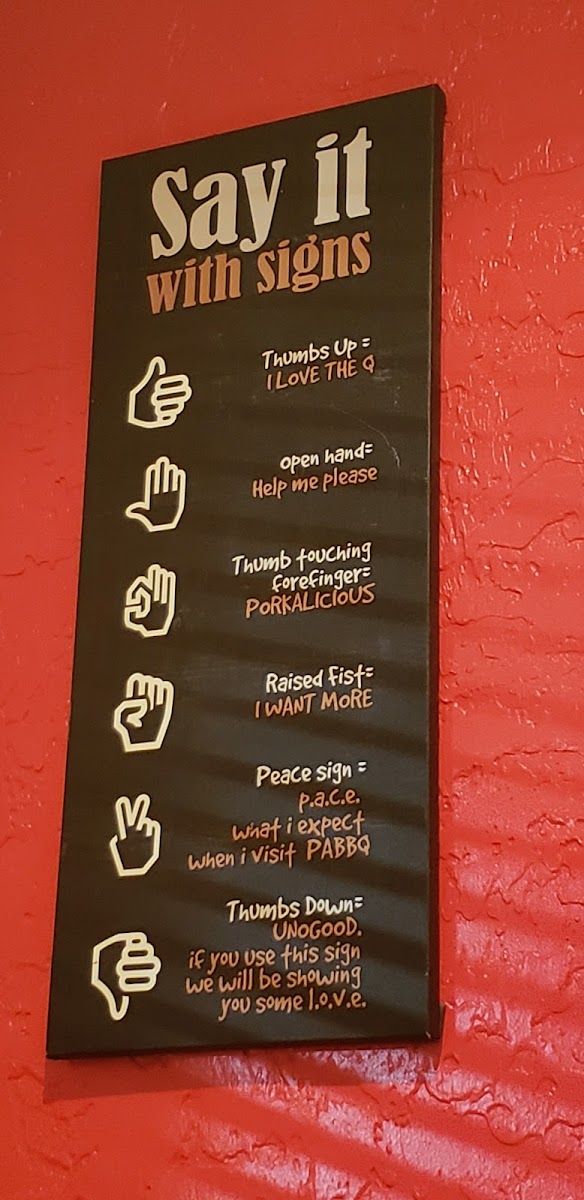 Say it
with signs
Thumbs Up =
I LOVE THE Q
open hand=
Help me please
Thumb touching
forefinger=
PORKALICIOUS
Raised Fist=
I WANT MORE
Peace sign =
p.a.c.e.
what i expect
when i visit PABBQ
Thumbs Down=
UNOGOOD.
if you use this sign
we will be showing
you some l.o.v.e.